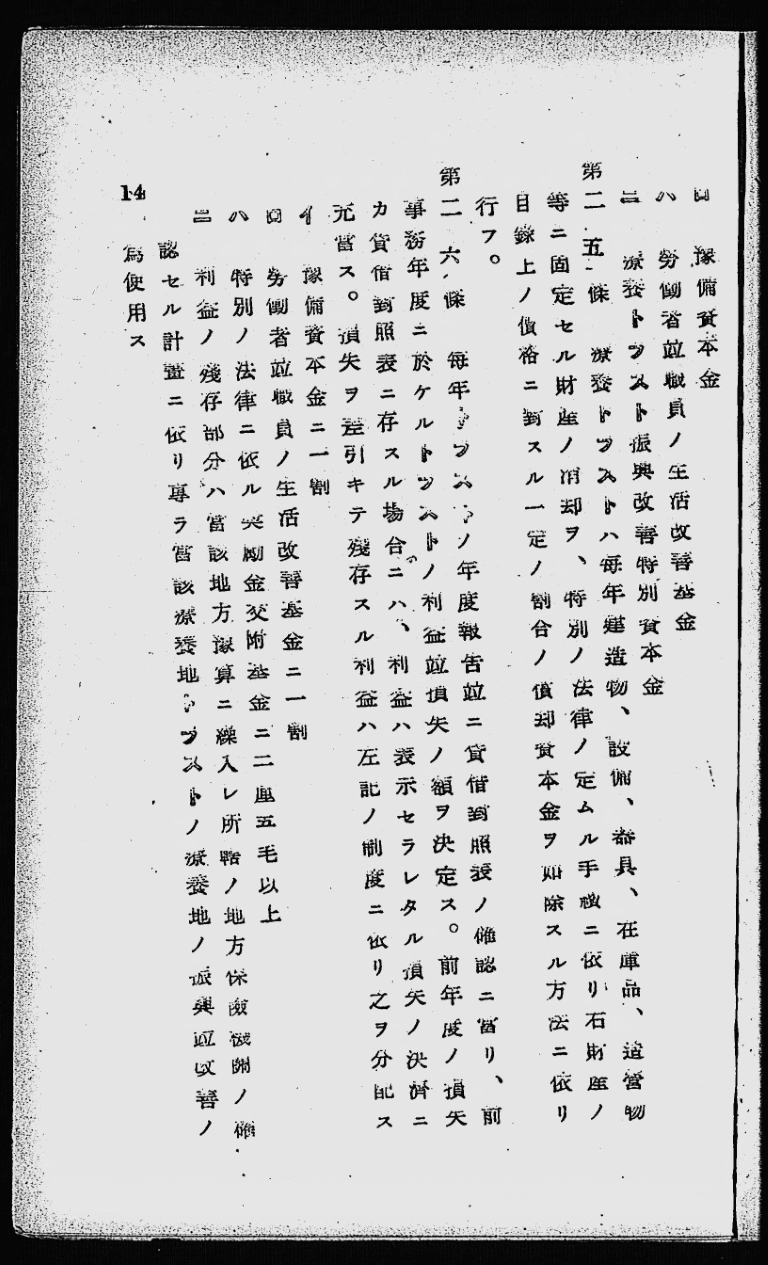 ロ 豫備資本金
ハ 勞働者竝職員ノ生活改善基金
ニ 療養トラスト振興改善特別資本金
第二五條 療養トラストハ毎年建造物、設備、器具、在庫品、造營物
等ニ固定セル財産ノ消却ヲ、特別ノ法律ノ定ムル手續ニ依リ右財産ノ
目録上ノ價格ニ對スル一定ノ割合ノ償却資本金ヲ加除スル方法ニ依リ
行フ。
第二六條 毎年トラストノ年度報告竝ニ貸借對照表ノ確認ニ當リ、前
事務年度ニ於ケルトラストノ利益竝損失ノ額ヲ決定ス。前年度ノ損失
カ貸借對照表ニ存スル場合ニハ、利益ハ表示セラレタル損失ノ決濟ニ
充當ス。損失ヲ差引キテ殘存スル利益ハ左記ノ制度ニ依リ之ヲ分配ス
イ 豫備資本金ニ一割
ロ 勞働者竝職員ノ生活改善基金ニ一割
ハ 特別ノ法律ニ依ル奬勵金交附基金ニ二厘五毛以上
ニ 利益ノ殘存部分ハ當該地方豫算ニ繰入レ所轄ノ地方保險機關ノ確
認セル計畫ニ依リ專ラ當該療養地トラストノ療養地ノ振興竝改善ノ
爲使用ス
14